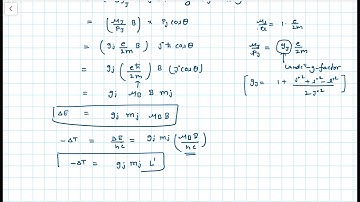 = (μJ/PJ B) × PJ cosθ
= (gj e/2m B) j*ħ cosθ
= gj (eħ/2m) B (j*cosθ)
= gj μB B mj
ΔE = gj mj μB B
-ΔT = ΔE/hc = gj mj (μB B/hc)
-ΔT = gj mj L'
= 1 · e/2m
μJ/PJ = gj e/2m
Landé-g-factor
[gj = 1 + j*² + s*² - l*² / 2j*²]